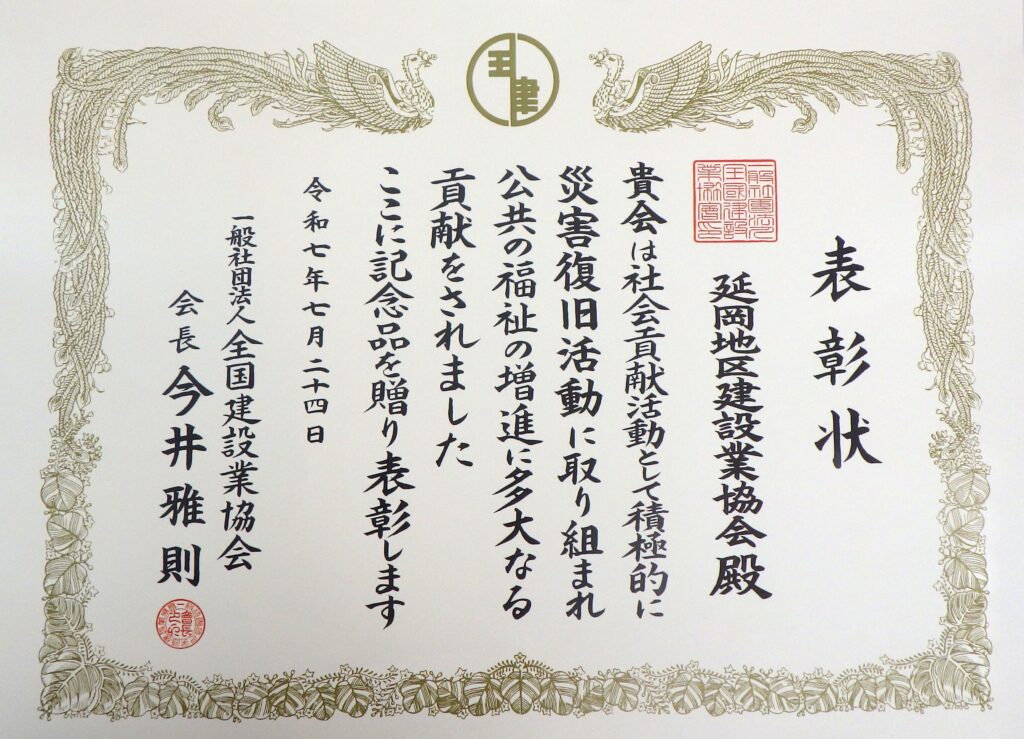 表彰状
延岡地区建設業協会殿
貴会は社会貢献活動として積極的に
災害復旧活動に取り組まれ
公共の福祉の増進に多大なる
貢献をされました
ここに記念品を贈り表彰します
令和七年七月二十四日
一般社団法人全国建設業協会
会長今井雅則